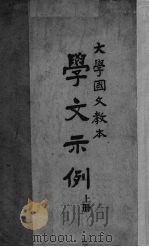 大學國文教本
學文示例
上冊
mtoou.info